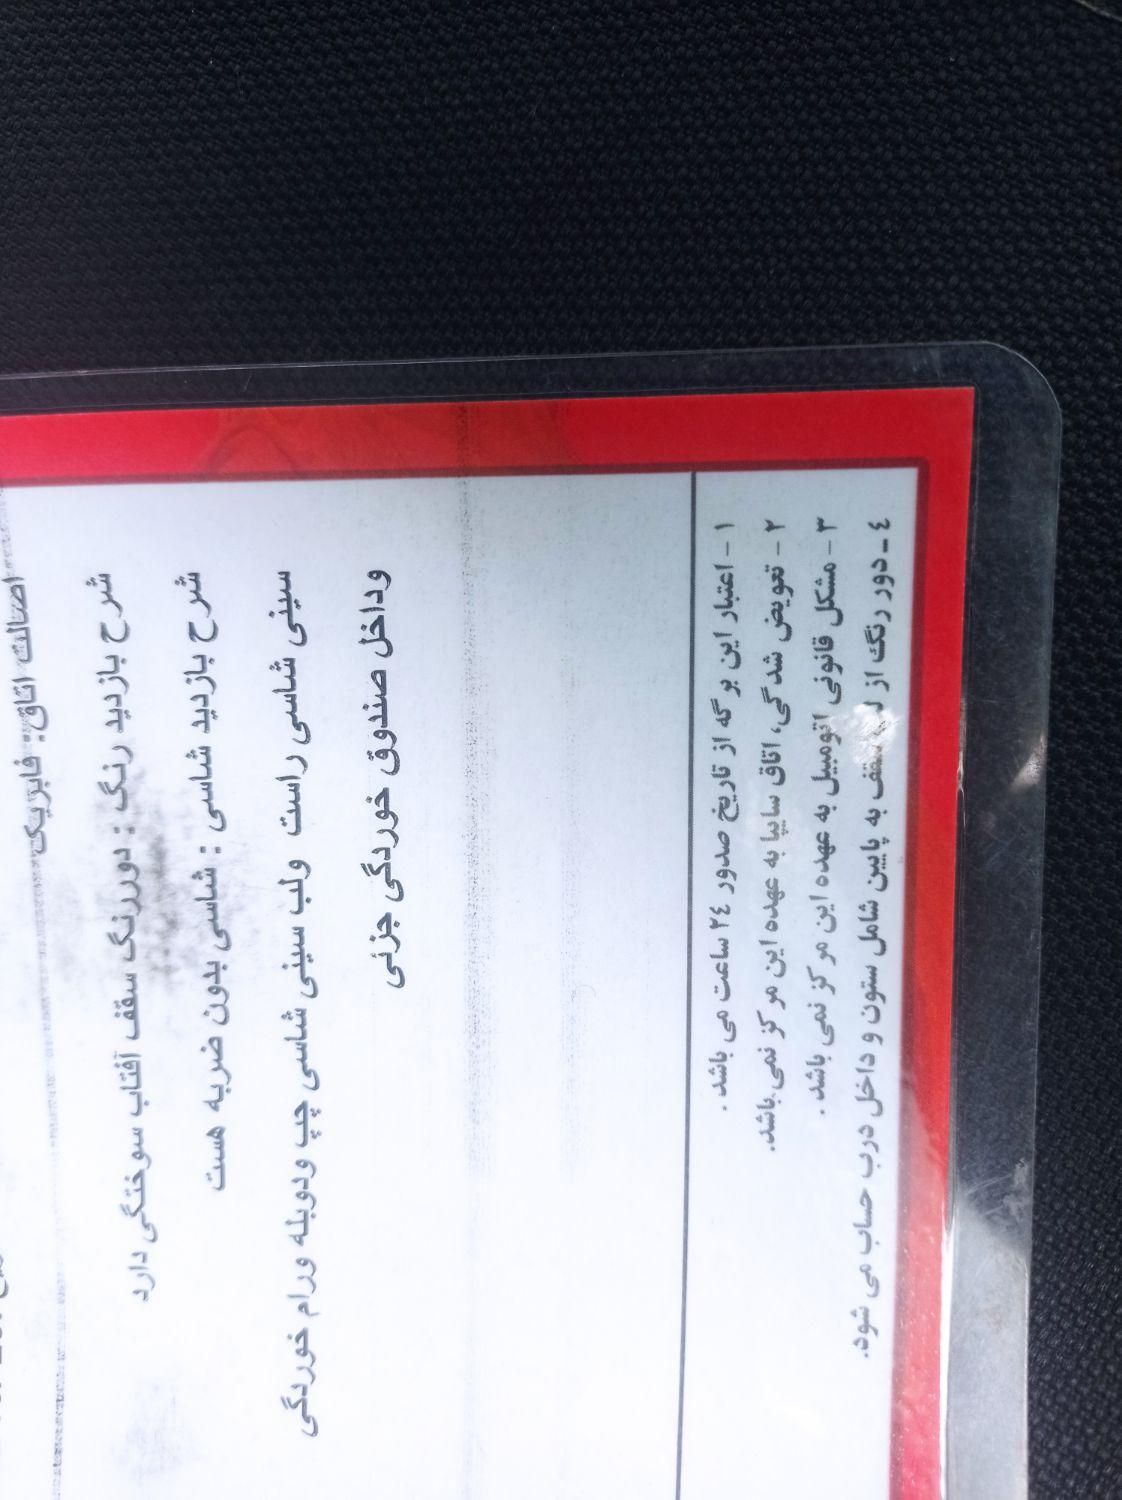 اصالت اتاق: فابریک
شرح بازدید رنگ : دوررنگ سقف آفتاب سوختگی دارد
شرح بازدید شاسی : شاسی بدون ضربه هست
سینی شاسی راست ولب سینی شاسی چپ ودوبله ورام خوردگی
وداخل صندوق خوردگی جزئی
۱ - اعتبار این برگه از تاریخ صدور ۲٤ ساعت می باشد .
۲ - تعویض شدگی، اتاق سایپا به عهده این مرکز نمی باشد.
۳ - مشکل قانونی اتومبیل به عهده این مرکز نمی باشد .
٤ - دور رنگ از به پایین شامل ستون و داخل درب حساب می شود.